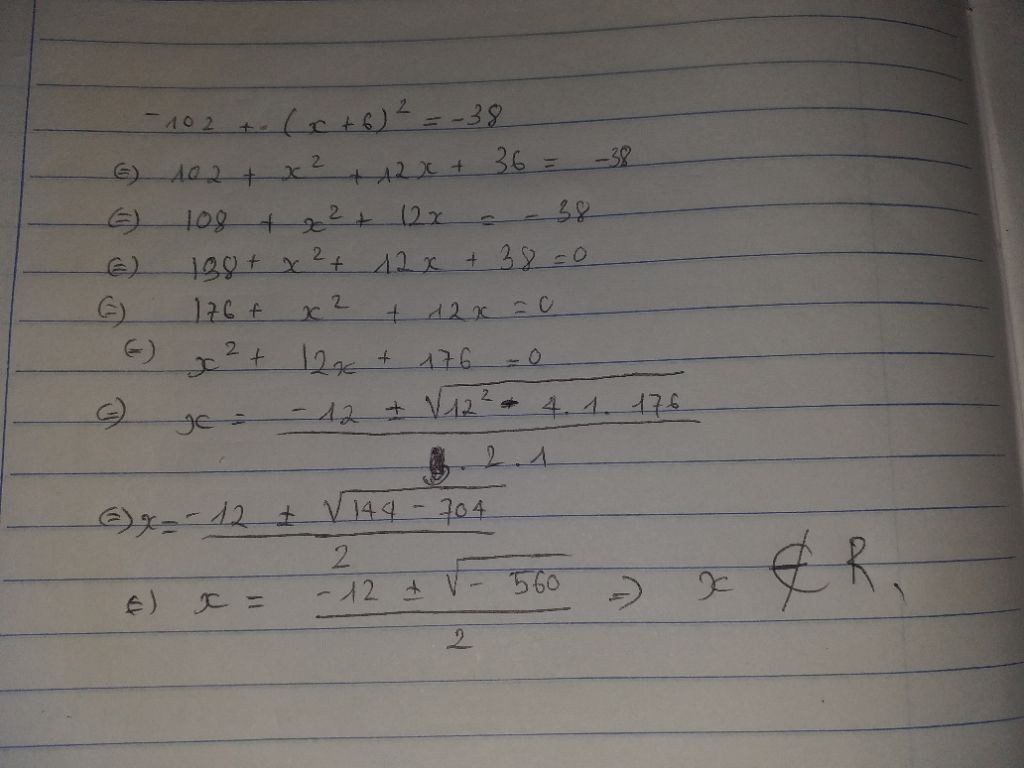 -102 + (x + 6)² = -38
(=) 102 + x² + 12x + 36 = -38
(=) 108 + x² + 12x = -38
(=) 138 + x² + 12x + 38 = 0
(=) 176 + x² + 12x = 0
(=) x² + 12x + 176 = 0
(=) x = (-12 ± √(12² - 4.1.176)) / (2.1)
(=) x = (-12 ± √(144 - 704)) / 2
(=) x = (-12 ± √(-560)) / 2 => x ∉ R,